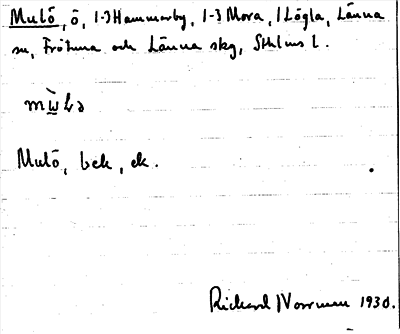 Mulö, ö, 1-3 Hammarby, 1-3 Mora, 1 Lögla, Länna
sn, Fröhuna och Länna skg, Sthlms l.
Mulö, bek, ek.
Richard Norrman 1930.